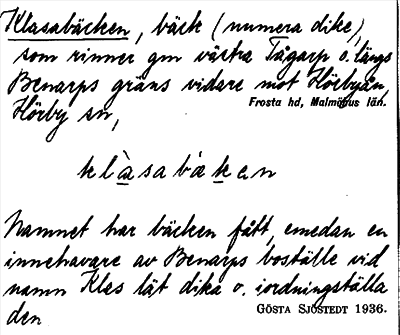 Klasabäcken, bäck (numera dike),
som rinner gm västra Tågarp o. längs
Benarps gräns vidare mot Hörbyån,
Frosta hd, Malmöhus län.
Hörby sn,
klàsabáken
Namnet har bäcken fått, emedan en
innehavare av Benarps boställe vid
namn Klas lät dika o. iordningställa
GÖSTA SJÖSTEDT 1936.
den